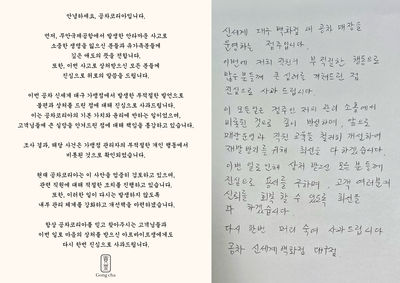 안녕하세요, 공차코리아입니다.
먼저, 무안국제공항에서 발생한 안타까운 사고로
소중한 생명을 잃으신 분들과 유가족분들께
깊은 애도의 뜻을 전합니다.
또한, 이번 사고로 상처받으신 모든 분들께
진심으로 위로의 말씀을 드립니다.
이번 공차 신세계 대구 가맹점에서 발생한 부적절한 발언으로
불편과 상처를 드린 점에 대해 진심으로 사과드립니다.
이는 공차코리아의 기본 가치와 윤리에 반하는 일이었으며,
고객님들께 큰 실망을 안겨드린 점에 대해 책임을 통감하고 있습니다.
조사 결과, 해당 사건은 가맹점 관리자의 부적절한 개인 행동에서
비롯된 것으로 확인되었습니다.
현재 공차코리아는 이 사안을 엄중히 검토하고 있으며,
관련 직원에 대해 적절한 조치를 진행하고 있습니다.
또한, 이러한 일이 다시는 발생하지 않도록
내부 관리 체계를 강화하고 개선책을 마련하겠습니다.
항상 공차코리아를 믿고 찾아주시는 고객님들과
이번 일로 마음의 상처를 받으신 아르바이트생에게도
다시 한번 진심으로 사과드립니다.
貢茶
Gong cha
신세계 대구 백화점 내 공차 매장을
운영하는 점주입니다.
이번에 저희 직원의 부적절한 행동으로
많은 분들께 큰 실망을 끼쳐드린 점
진심으로 사과 드립니다.
이 모든 일은 점주인 저의 관리 소홀에서
비롯된 것으로 깊이 반성하며, 앞으로
매장운영과 직원 교육을 철저히 개선하여
재발방지를 위해 최선을 다 하겠습니다.
이번 일로 인해 상처 받으신 모든 분들께
진심으로 용서를 구하며, 고객 여러분의
신뢰를 회복 할 수 있도록 최선을
다 하겠습니다.
다시 한번 머리 숙여 사과 드립니다
공차 신세계백화점 대구점